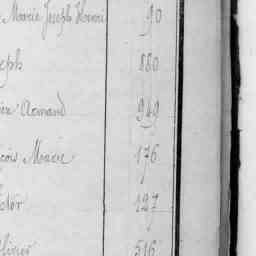 Marie Joseph Honoré 90
eph 880
Armand 949
çois Marie 176
ctor 127
516